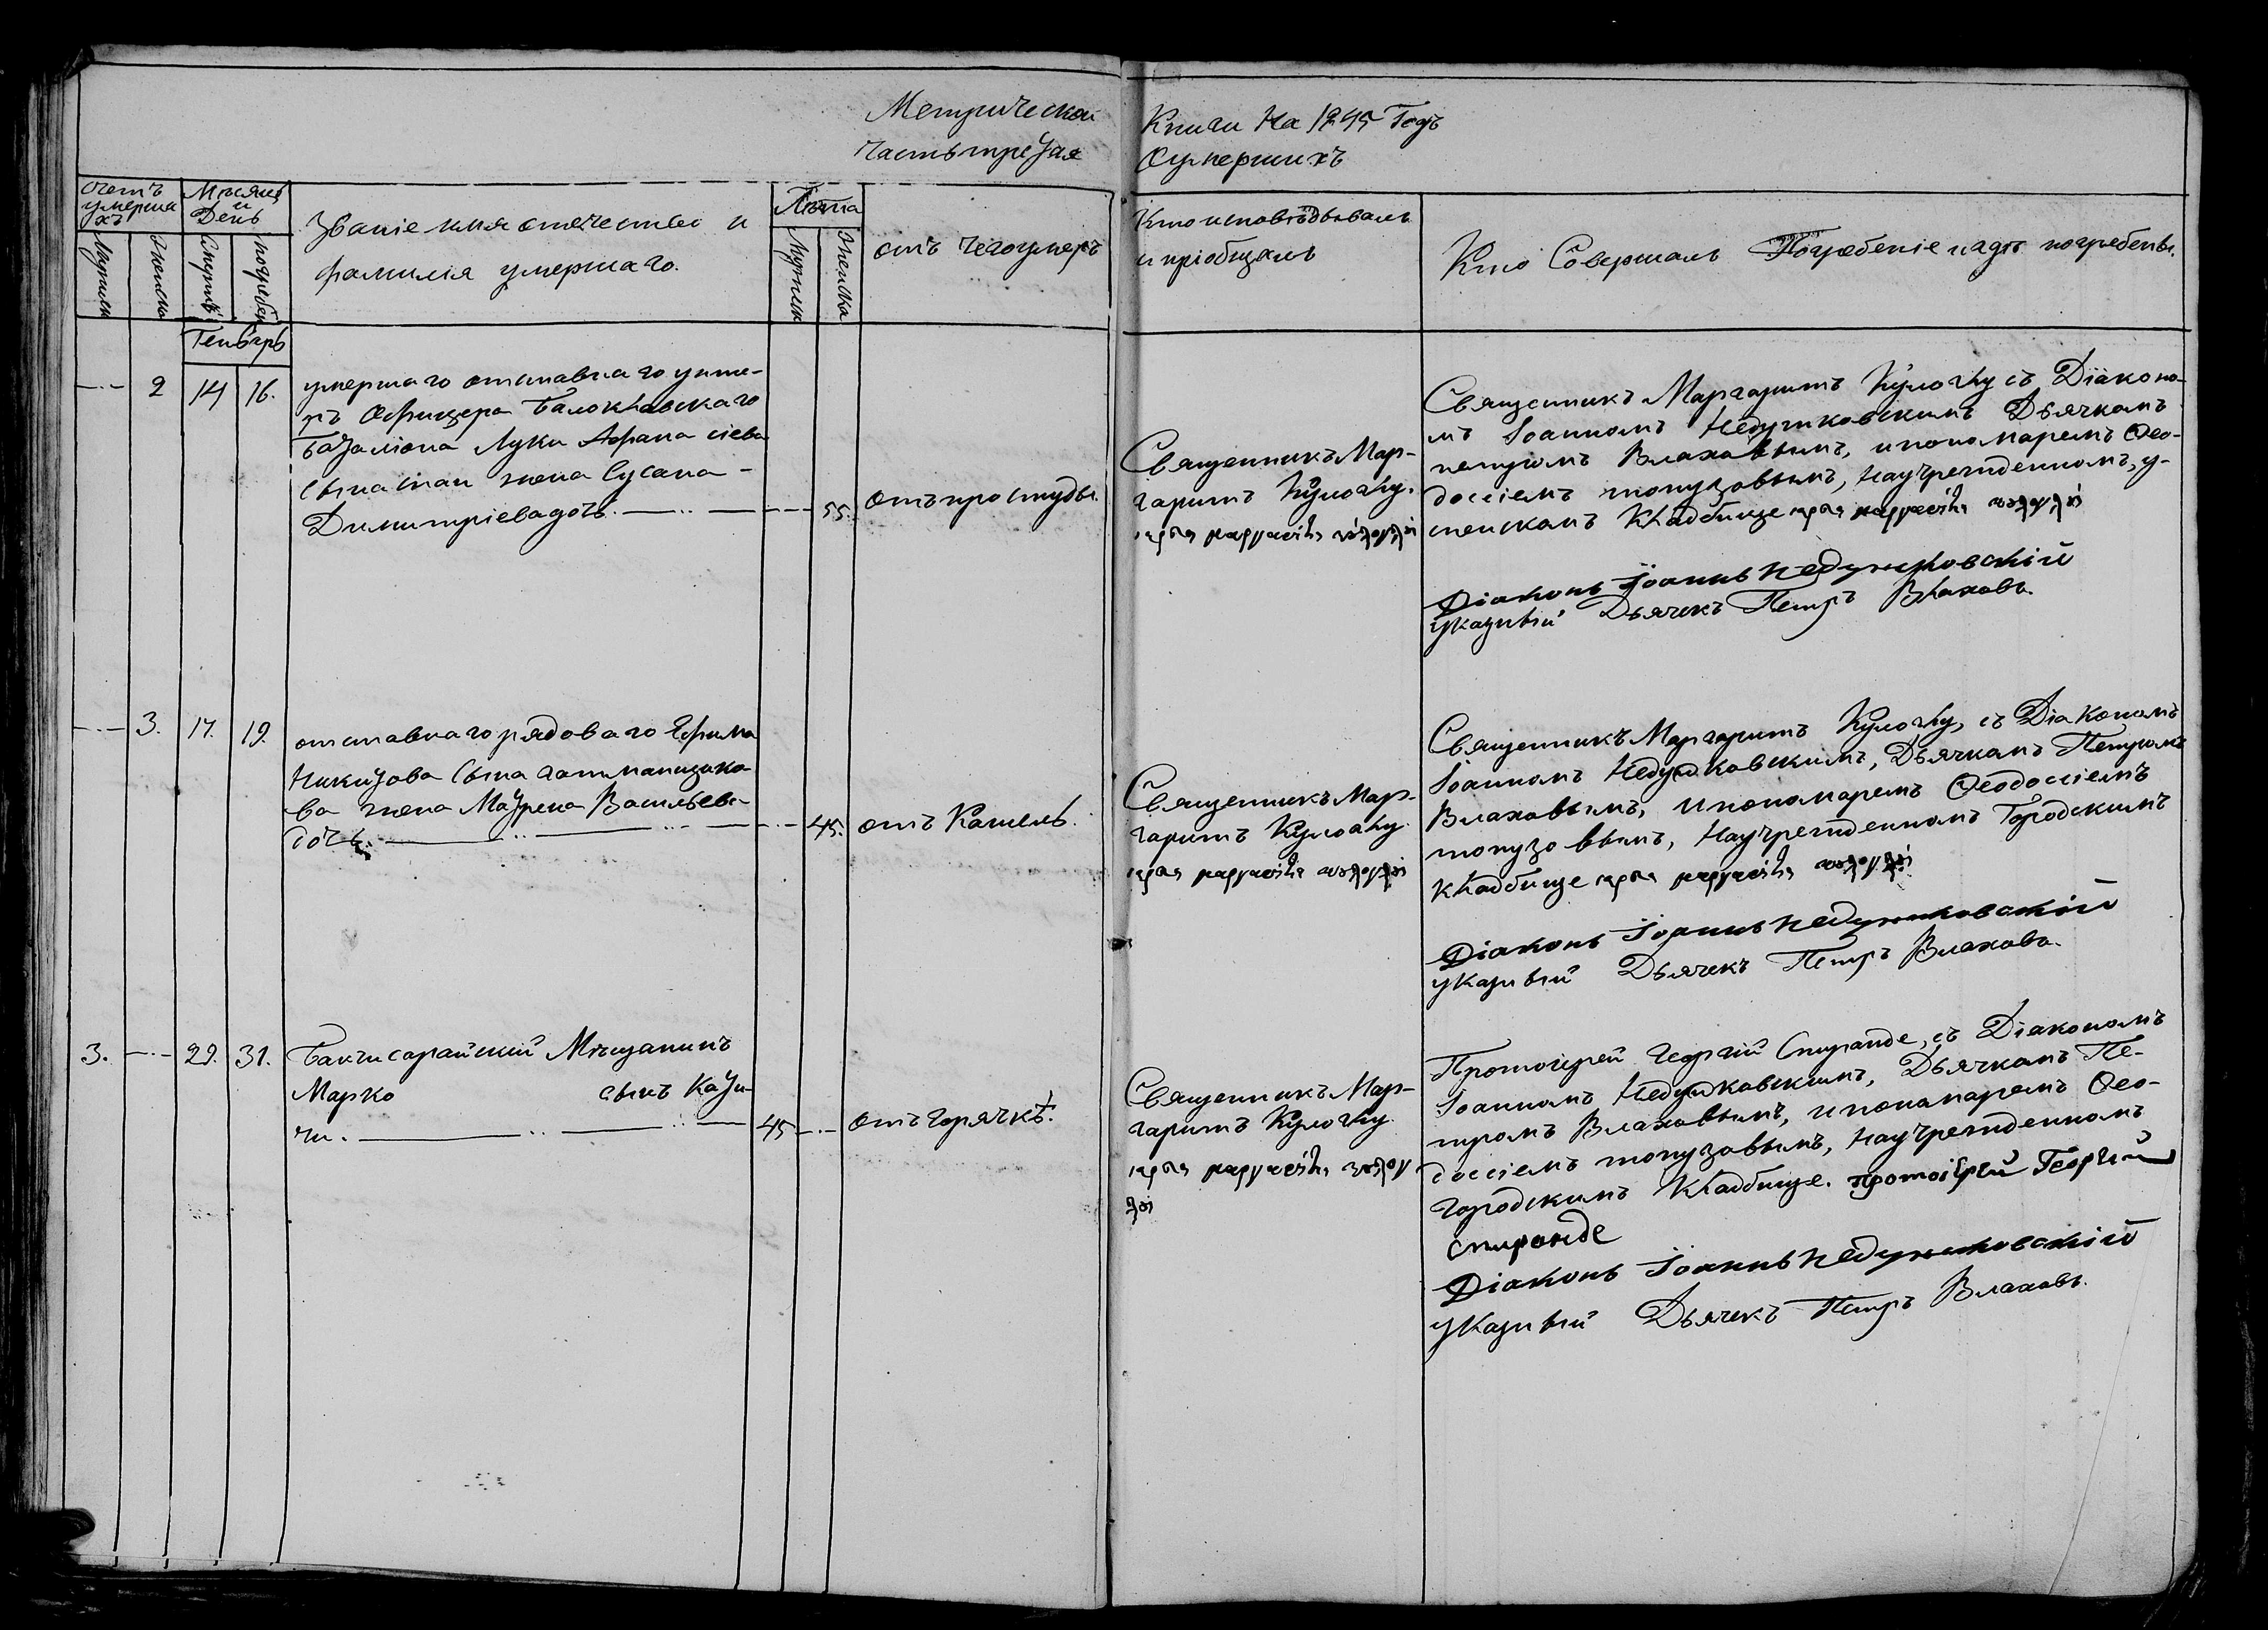 Метрической Книги На 1845 Годъ
Часть третая Оумершихъ
Счетъ умерши хъ
Мѣсяцъ и День
Званіе имя отечество и
фамилія умершаго.
Лѣта
отъ чего умеръ
Кто исповѣдывалъ
и пріобщалъ
Кто Совершалъ Погребеніе и гдѣ погребены.
Мужеска
Женска
Смерть
погребен
Мужеска
Женска
Генварь
2 14 16.
умершаго отставнаго унте-
ръ Офицера Балоклавскаго
Баталіона Луки Афанасіева
Сына жена Сусана
Димитріева дочь.
55.
отъ простуды.
Священникъ Мар-
гаритъ
Священникъ Маргаритъ съ Діаконо-
мъ Іоанномъ Недзелковскимъ Дьячкомъ
петромъ Влаховымъ, и пономаремъ Ѳео-
досіемъ топузовымъ, На учрежденномъ, у-
Кладбище
Діаконъ Іоаннъ
указный Дьячекъ Петръ Влаховъ.
3. 17. 19.
отставнаго рядоваго Ефима
Никитова Сына
ва жена Матрена Васильева
дочь.
45.
отъ Кашель.
Священникъ Мар-
гаритъ
Священникъ Маргаритъ съ Діакономъ
Іоанномъ Дьячкомъ Петромъ
Влаховымъ, и пономаремъ Ѳеодосіемъ
топузовымъ, На учрежденномъ Городскимъ
Кладбище
Діаконъ Іоаннъ
указный Дьячекъ Петръ Влаховъ.
3. 29. 31.
Бакчисарайскій Мѣщанинъ
Марко сынъ
45
отъ горячкѣ.
Священникъ Мар-
гаритъ
Протоіерей Георгій Спиранде, съ Діакономъ
Іоанномъ Дьячкомъ Пе-
тромъ Влаховымъ, и пономаремъ Ѳео-
досіемъ топузовымъ, На учрежденномъ
городскимъ Кладбище. протоіерей Георгій
Спиранде
Діаконъ Іоаннъ
указный Дьячекъ Петръ Влаховъ.